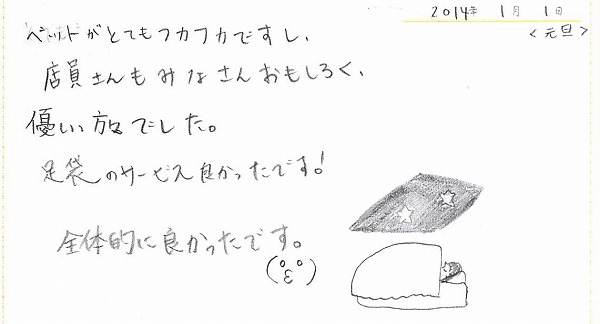 2014年 1月 1日
<元旦>
ベットがとてもフカフカですし、
店員さんもみなさんおもしろく、
優しい方でした。
足袋のサービス良かったです!
全体的に良かったです。
(°ε°)